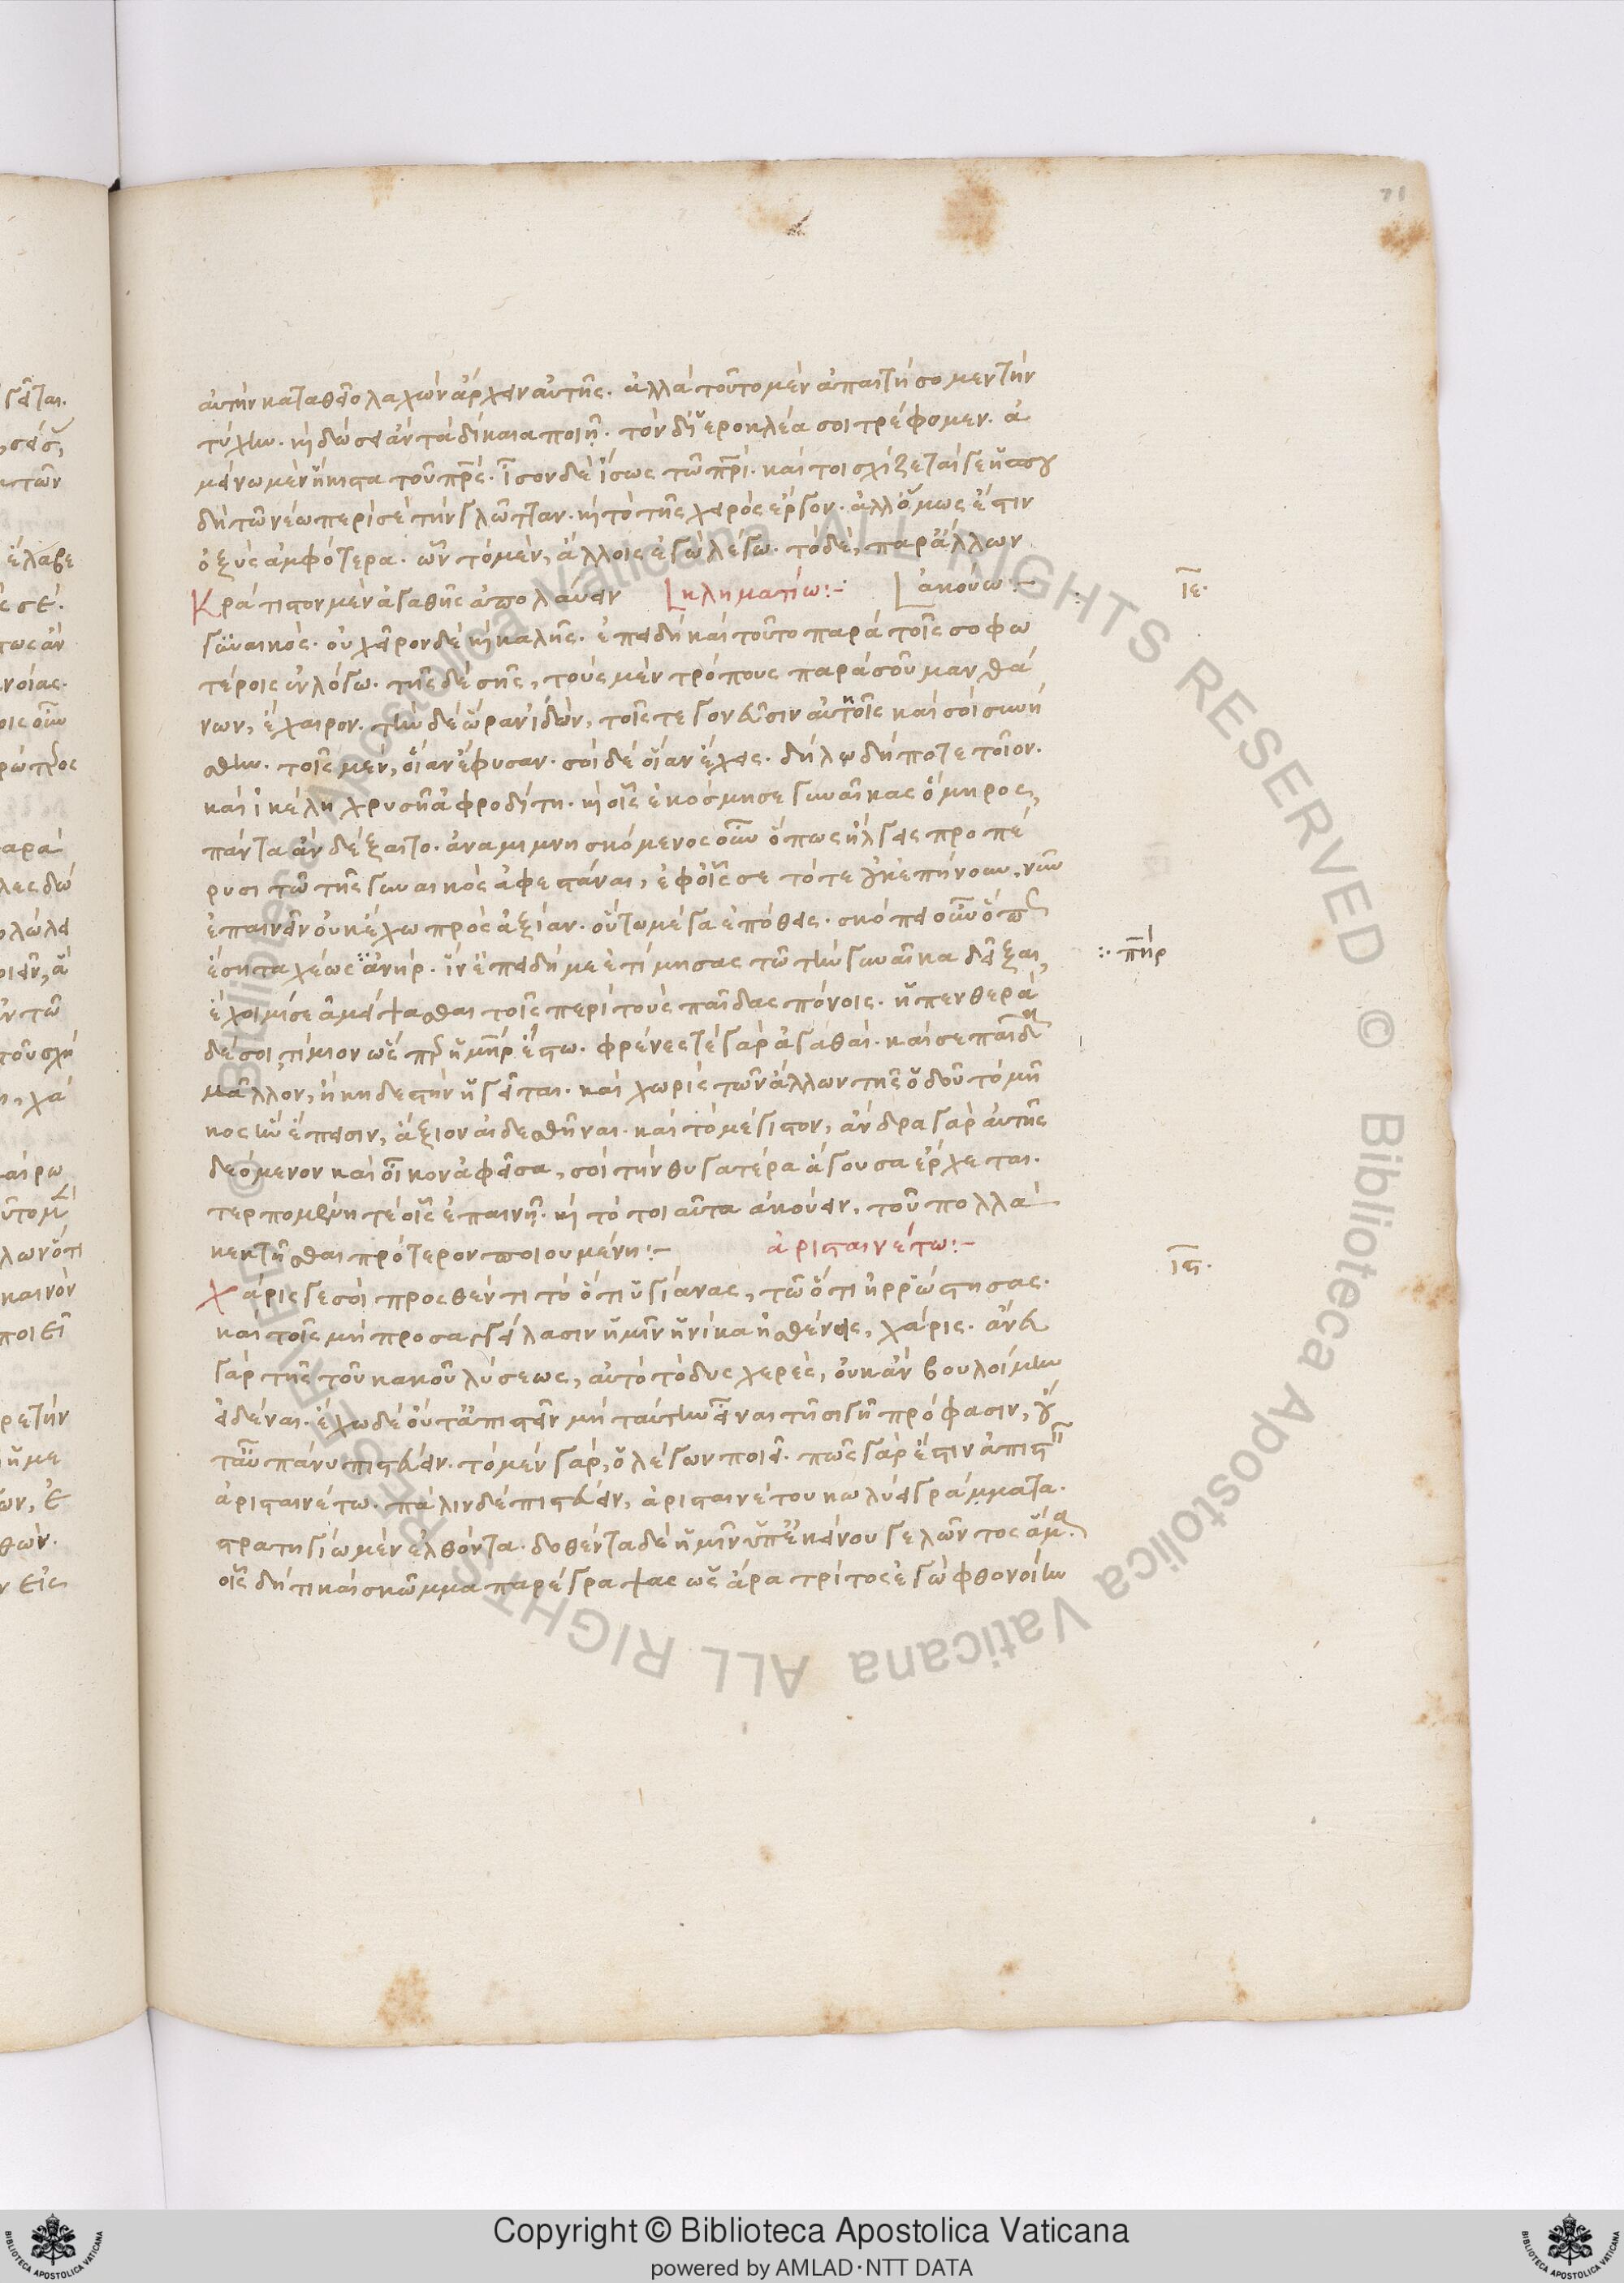 71
αὐτὴν καταθεῖο λαχὼν ἄρχειν αὐτῆς. ἀλλὰ τοῦτο μὲν ἀπαιτήσομεν τὴν
τύχην. ἡ δώσει ἂν τὰ δίκαια ποιῇ. τὸν δ' ἱεροκλέα σοι τρέφομεν. ἀ
μείνω μὲν ἥκιστα τοῦ πρς. ἴσον δὲ ἴσως τῶ πρι. καί τοι σχίζεταί γε
δὴ τῶ νέω περὶ σὲ τὴν γλῶτταν. καὶ τὸ τῆς χειρὸς ἔργον. ἀλλ' ὅμως ἔστιν
ὀξὺς ἀμφότερα. ὧν τὸ μὲν, ἄλλοις ἐγὼ λέγω. τὸ δὲ, παρ' ἄλλων
ἀκούω:-
Κράτιστον μὲν ἀγαθῆς ἀπολαύειν κληματίω:- ιε.
γυναικός. οὐ χεῖρον δὲ καὶ καλῆς. ἐπειδὴ καὶ τοῦτο παρὰ τοῖς σοφω
τέροις ἐν λόγω. τῆς δὲ σῆς, τοὺς μὲν τρόπους παρὰ σοῦ μανθά
νων, ἔχαιρον. τὴν δὲ ὥραν ἰδὼν, τοῖς τε γονεῦσιν αὐτῆς καὶ σοὶ συνή
σθην. τοῖς μὲν, οἵαν ἔφυσαν. σοὶ δὲ οἵαν ἔχεις.
καὶ ἰκέλη χρυσῆ ἀφροδίτη. καὶ οἷς ἐκόσμησε γυναῖκας ὅμηρος,
πάντα ἂν δέξαιτο. ἀναμιμνησκόμενος οὖν ὅπως ἤλγεις προπέ
ρυσι τῶ τῆς γυναικὸς ἀφεστάναι, ἐφ' οἷς σε τότε οὐκ ἐπήνουν, νῦν
ἐπαινεῖν οὐκ ἔχω πρὸς ἀξίαν. οὕτω μέγα ἐπόθεις. σκόπει οὖν ὅπ
ἔση ταχέως ἀνήρ. ἵν' ἐπειδή με ἐτίμησας τῶ τὴν γυναῖκα δεῖξαι, πηρ
ἔχοιμί σε ἀμείψασθαι τοῖς περὶ τοὺς παῖδας πόνοις. ἡ πενθερὰ
δέ σοι τίμιον ὡς πρ ἢ μηρ ἔστω. φρένες τε γὰρ ἀγαθαί. καί σε παῖδ
μᾶλλον, ἢ κηδεστὴν ἡγεῖται. καὶ χωρὶς τῶν ἄλλων τῆς ὁδοῦ τὸ μῆ
κος ἣν ἔπεισιν, ἄξιον αἰδεσθῆναι. καὶ τὸ μέγιστον, ἄνδρα γὰρ αὐτῆς
δεόμενον καὶ οἶκον ἀφεῖσα, σοὶ τὴν θυγατέρα ἄγουσα ἔρχεται.
τερπομένη τέ οἷς ἐπαινῇ. καὶ τό τοι αὐτὰ ἀκούειν, τοῦ πολλὰ
κεκτῆσθαι πρότερον ποιουμένη:-
ἀρισταινέτω:- ις.
Χάρις γέ σοι προσθέντι τὸ ὅτι ὑγίανας, τῶ ὅτι ἠρρώστησας.
καὶ τοῖς μὴ προσαγγείλασιν ἡμῖν ἡνίκα ἠσθένεις, χάρις. ἄνευ
γὰρ τῆς τοῦ κακοῦ λύσεως, αὐτὸ τὸ δυσχερὲς, οὐκ ἂν βουλοίμην
εἰδέναι. ἔχω δὲ οὔτ' ἀπιστεῖν μὴ ταύτην εἶναι τῆ σιγῆ πρόφασιν, οὔ
τ' αὖ πάνυ πιστεύειν. τὸ μὲν γὰρ, ὁ λέγων ποιεῖ. πῶς γάρ ἐστιν ἀπιστ
ἀρισταινέτω. πάλιν δὲ πιστεύειν, ἀρισταινέτου κωλύει γράμματα.
στρατηγίω μὲν ἐλθόντα. δοθέντα δὲ ἡμῖν ὑπ' ἐκείνου γελῶντος ἅμα
οἷς δή τι καὶ σκῶμμα παρέγραψας ὡς ἄρα τρίτος ἐγὼ φθονοίην
Copyright © Biblioteca Apostolica Vaticana
powered by AMLAD·NTT DATA